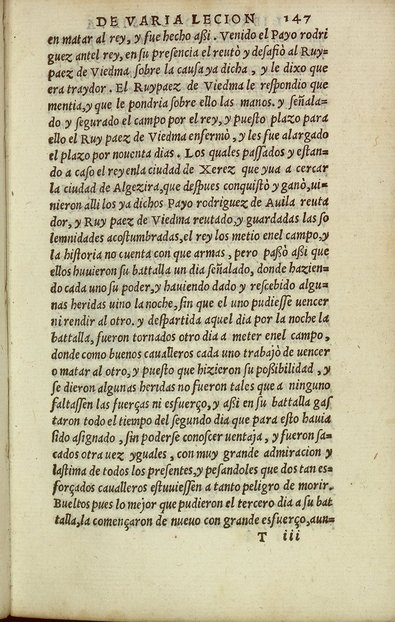 DE VARIA LECION 147
en matar al rey, y fue hecho aßi. Venido el Payo rodri
guez antel rey, en su presencia el reutò y desafiò al Ruy
paez de Viedma sobre la causa ya dicha, y le dixo que
era traydor. El Ruypaez de Viedma le respondio que
mentia, y que le pondria sobre ello las manos. y señala-
do y segurado el campo por el rey, y puesto plazo para
ello el Ruy paez de Viedma enfermò, y les fue alargado
el plazo por nouenta dias. Los quales passados y estan-
do a caso el rey en la ciudad de Xerez que yua a cercar
la ciudad de Algezira, que despues conquistò y ganò, ui-
nieron alli los ya dichos Payo rodriguez de Auila reuta
dor, y Ruy paez de Viedma reutado, y guardadas las so
lemnidades acostumbradas, el rey los metio enel campo, y
la historia no cuenta con que armas, pero paßò aßi que
ellos huuieron su battalla un dia señalado, donde hazien-
do cada uno su poder, y hauiendo dado y rescebido algu-
nas heridas uino la noche, sin que el uno pudiesse uencer
ni rendir al otro. y despartida aquel dia por la noche la
battalla, fueron tornados otro dia a meter enel campo,
donde como buenos caualleros cada uno trabajò de uencer
o matar al otro, y puesto que hizieron su poßibilidad, y
se dieron algunas heridas no fueron tales que a ninguno
faltassen las fuerças ni esfuerço, y aßi en su battalla gas
taron todo el tiempo del segundo dia que para esto hauia
sido asignado, sin poderse conoscer uentaja, y fueron sa-
cados otra uez yguales, con muy grande admiracion y
lastima de todos los presentes, y pesandoles que dos tan es-
forçados caualleros estuuiessen a tanto peligro de morir.
Bueltos pues lo mejor que pudieron el tercero dia a su bat
talla, la començaron de nueuo con grande esfuerço, aun-
T iii